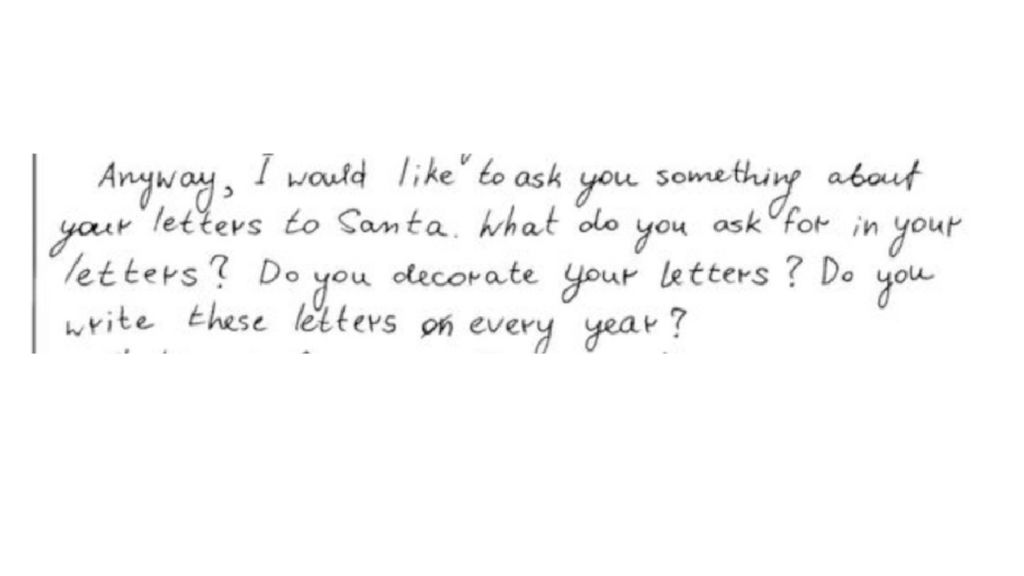 Anyway, I would like to ask you something about
your letters to Santa. What do you ask for in your
letters? Do you decorate your letters? Do you
write these letters on every year?